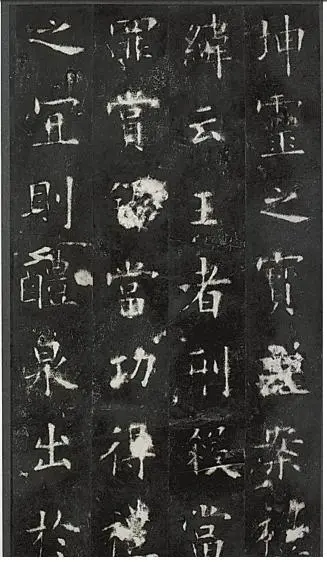 坤靈之寶案禮
緯云王者刑殺當
罪賞當功得禮
之宜則醴泉出於